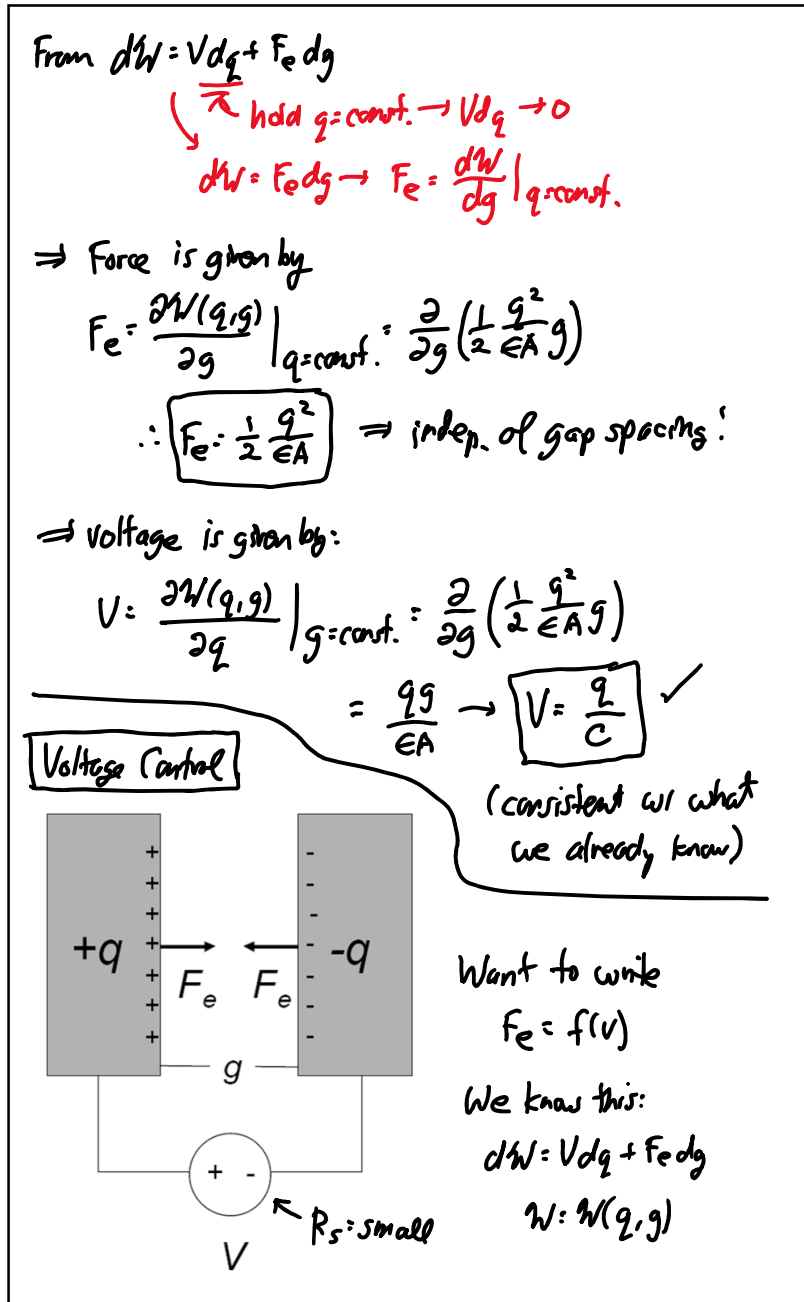 From dW = Vdq + Fe dg
hold q=const. → Vdq → 0
dW = Fe dg → Fe = dW/dg |q=const.
⇒ Force is given by
Fe = ∂W(q,g)/∂g |q=const. = ∂/∂g (1/2 q²/εA g)
∴ Fe = 1/2 q²/εA ⇒ indep. of gap spacing!
⇒ Voltage is given by:
V = ∂W(q,g)/∂q |g=const. = ∂/∂g (1/2 q²/εA g)
= qg/εA → V = q/C ✓
(consistent w/ what
we already know)
Voltage Control
+ -
+ -
+ -
+q + - -q
Fe Fe
+ -
+ -
+ -
g
+ -
Rs = small
V
Want to write
Fe = f(v)
We know this:
dW = Vdq + Fe dg
W = W(q,g)